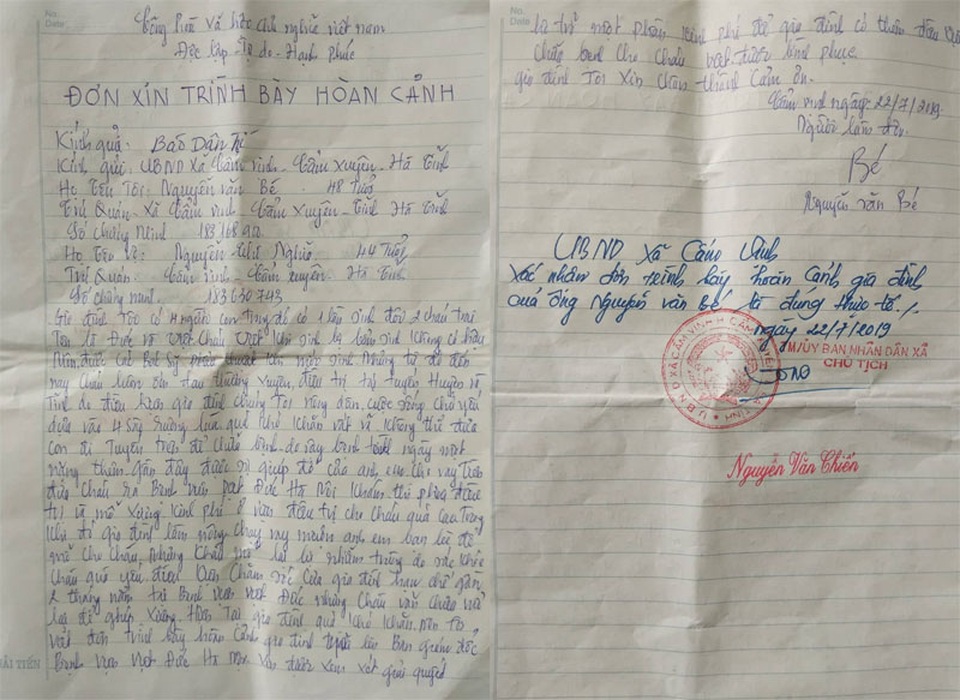 No.
Date
Cộng hoà xã hội chủ nghĩa việt nam
Độc lập - Tự do - Hạnh phúc
ĐƠN XIN TRÌNH BÀY HOÀN CẢNH
Kính gửi: Báo Dân trí
Kính gửi: UBND Xã Cẩm Vịnh - Cẩm Xuyên - Hà Tĩnh
Họ tên Tôi: Nguyễn văn Bé 48 Tuổi
Trú Quán: Xã Cẩm vịnh - Cẩm Xuyên - Tỉnh Hà Tĩnh
Số chứng minh
Họ Tên Vợ: Nguyễn Thị 44 Tuổi
Trú Quán: Cẩm vịnh - Cẩm Xuyên - Hà Tĩnh
Số chứng minh: 183630743
Gia đình Tôi có người con Trong đó có 1 lần sinh đôi 2 cháu trai
Tên là Đức và Việt Cháu Việt Khi sinh ra bẩm sinh Không có hậu
Môn, được các Bác Sỹ phẫu thuật khi mới sinh. Nhưng từ đó đến
nay Cháu luôn ốm đau thường xuyên, điều trị tại tuyến Huyện và
Tỉnh do điều kiện gia đình chúng Tôi nông dân cuộc sống chủ yếu
dựa vào 4 sào ruộng lúa, quá khó Khăn vất vả Không thể đưa
con đi Tuyến trên để chữa bệnh do vậy bệnh ngày một
nặng thêm gần đây được sự giúp đỡ của anh em Cho vay Tiền
đưa Cháu ra Bệnh viện Đức Hà Nội Khám thì phải điều
trị và mổ xương Kinh phí ở viện điều trị cho Cháu quá cao Trong
Khi đó gia đình làm nông chạy vay mượn anh em bạn bè để
mổ cho Cháu, Nhưng Cháu mổ lại bị nhiễm trùng do sức khỏe
Cháu quá yếu điều kiện Chăm sóc của gia đình hạn chế gần
2 tháng nằm tại Bệnh viện Việt Đức nhưng Cháu vẫn chưa mổ
lại để ghép xương. Hiện Tại gia đình quá khó Khăn nên tôi
viết đơn trình bày hoàn cảnh gia đình lên Ban giám đốc
Bệnh viện Việt Đức Hà Nội được xem xét giải quyết
HẢI TIẾN
No.
Date
trừ một phần kinh phí để gia đình có thêm điều
chữa bệnh cho cháu được bình phục.
gia đình Tôi Xin Chân thành cảm ơn.
Cẩm vịnh ngày: 22/7/2019
Người làm đơn.
Bé
Nguyễn Văn Bé
UBND Xã Cẩm Vịnh
Xác nhận đơn trình bày hoàn cảnh gia đình
của Ông Nguyễn Văn Bé là đúng thực tế./.
ngày 22/7/2019
TM/ỦY BAN NHÂN DÂN XÃ
CHỦ TỊCH
U.B.N.D XÃ CẨM VỊNH H. CẨM XUYÊN
Nguyễn Văn Chiến